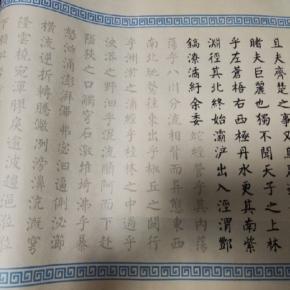 且夫齊楚之事又焉足
睹夫巨麗也獨不聞天子之上林
乎左蒼梧右西極丹水更其南紫
淵徑其北終始灞滻出入涇渭酆
鎬潦潏紆余委蛇經營乎其內蕩
蕩乎八川分流相背而異態東西
南北馳騖往來出乎椒丘之闕行
乎洲淤之浦經乎桂林之中過乎
泱漭之野汩乎混流順阿而下赴
隘狹之口觸穹石激堆埼沸乎暴
怒洶涌澎湃滭弗宓汩逼側泌瀄
橫流逆折轉騰潎洌滂濞沆溉穹
隆雲橈宛潬膠盭逾波趨浥涖涖